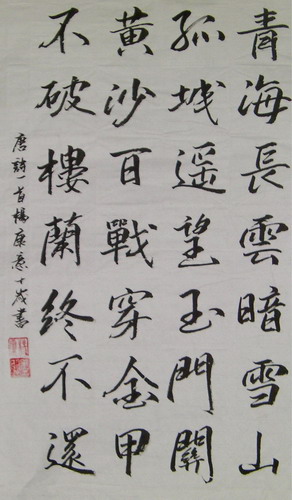 青海長雲暗雪山
孤城遥望玉門關
黄沙百戰穿金甲
不破樓蘭終不還
唐詩一首楊康意十歲書